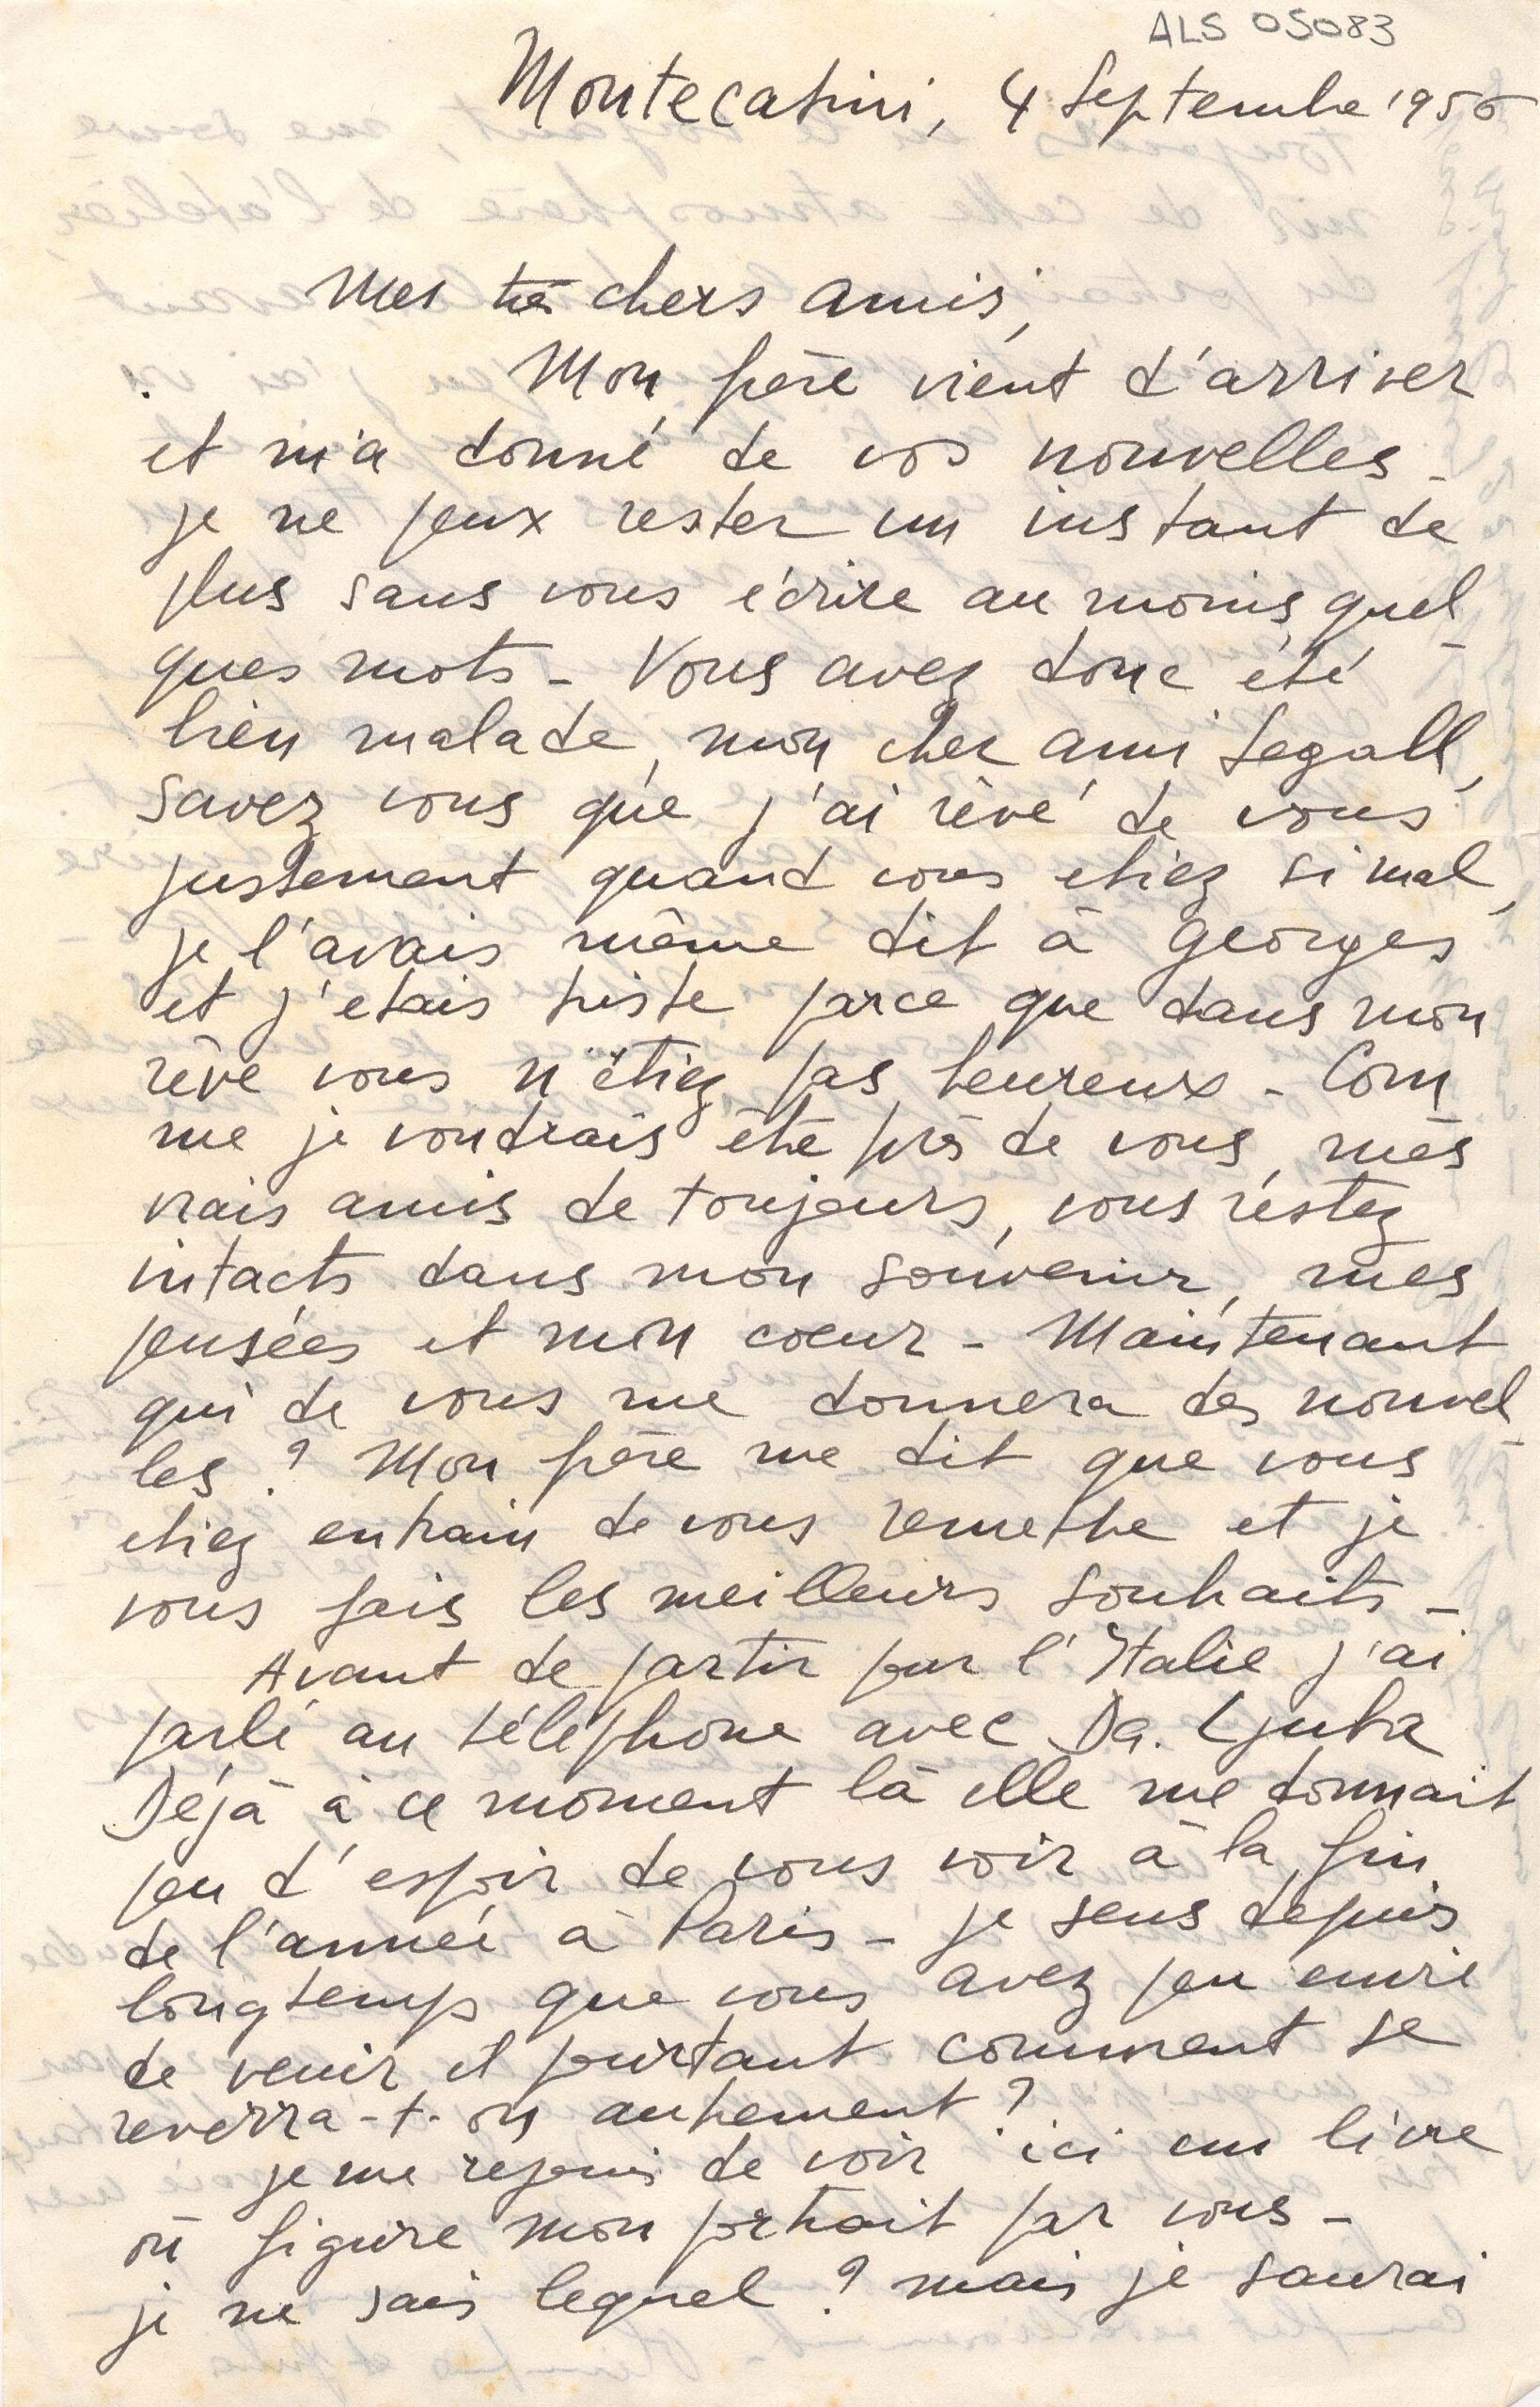 ALS 05083
Montecatini, 4 Septembre 1956
Mes très chers amis,
Mon père vient d'arriver
et m'a donné de vos nouvelles -
je ne peux rester un instant de
plus sans vous écrire au moins quel-
ques mots - Vous avez donc été
bien malade, mon cher ami Segall,
savez vous que j'ai rêvé de vous
justement quand vous etiez si mal,
je l'avais même dit à Georges
et j'etais triste parce que dans mon
rêve vous n'étiez pas heureux - Com
me je voudrais être près de vous, mes
vrais amis de toujours, vous restez
intacts dans mon souvenir, mes
pensées et mon coeur - Maintenant
qui de vous me donnera des nouvel-
les ? Mon père me dit que vous
etiez entrain de vous remettre et je
vous fais les meilleurs souhaits -
Avant de partir pour l'Italie j'ai
parlé au téléphone avec Da. Ljuba
Déjà à ce moment là elle me donnait
peu d'espoir de vous voir à la fin
de l'année à Paris - je sens depuis
longtemps que vous avez peu envie
de venir et pourtant comment se
reverra-t-on autrement ?
je me rejouis de voir ici un livre
où figure mon portrait par vous -
je ne sais lequel ? mais je saurai